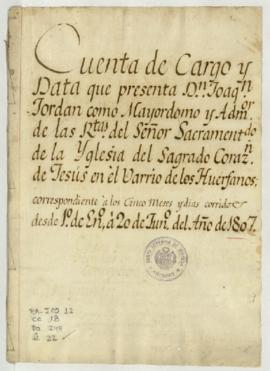 Cuenta de Cargo y
Data que presenta Dn. Joaqn.
Jordan como Mayordomo y Admor.
de las Rtas. del Señor Sacramentdo
de la Yglesia del Sagrado Corazn.
de Jesus en el Varrio de los Huerfanos;
correspondiente â los Cinco Meses y dias corridos
desde 1º. de Enº. â 20 de Junº. del Año de 1807.
CC 18
22